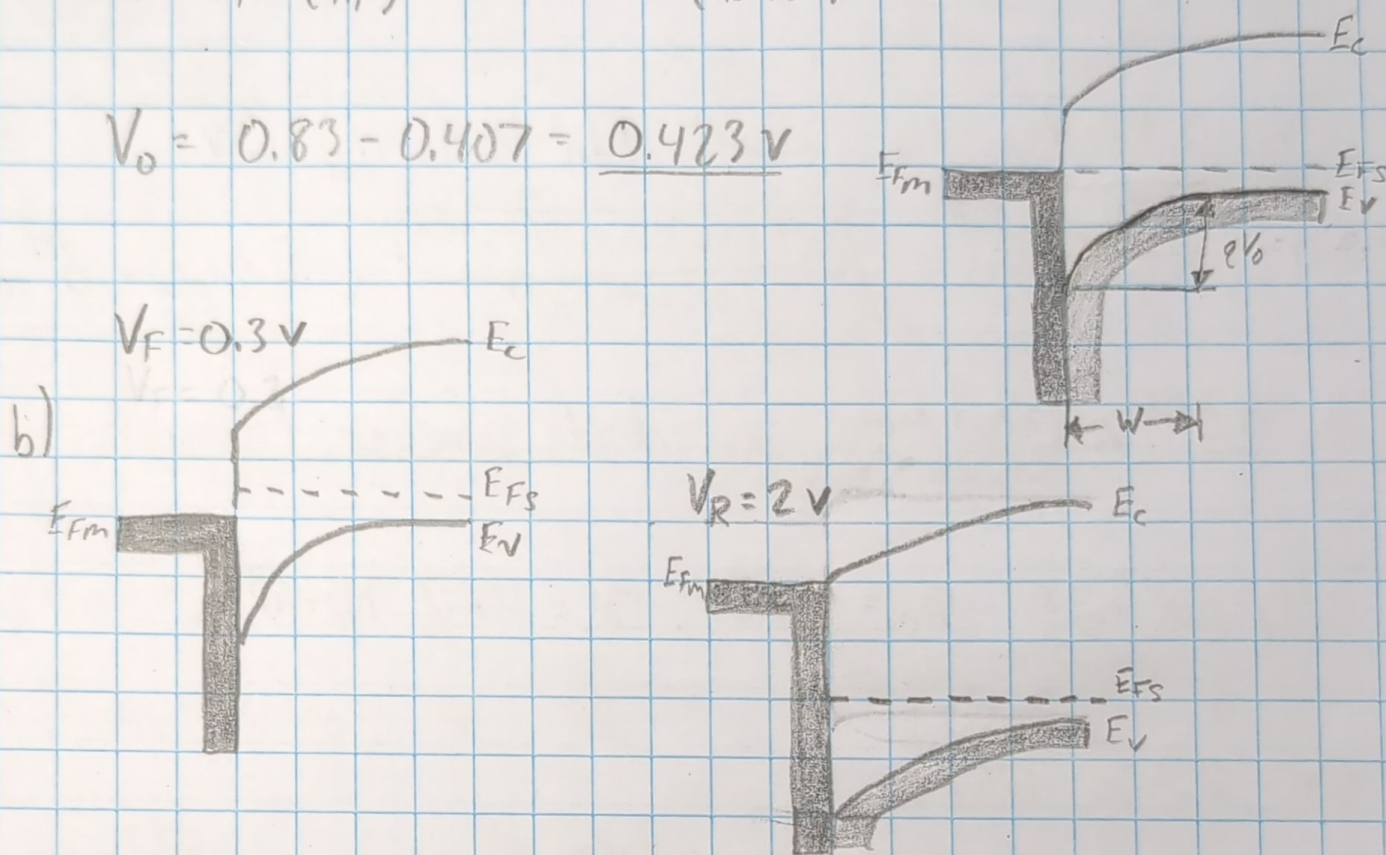 V₀ = 0.83 - 0.407 = 0.423 V
E_c
E_Fm
E_Fs
E_v
qV₀
W
b)
V_F = 0.3 V
E_c
E_Fs
E_Fm
E_v
V_R = 2 V
E_c
E_Fm
E_Fs
E_v